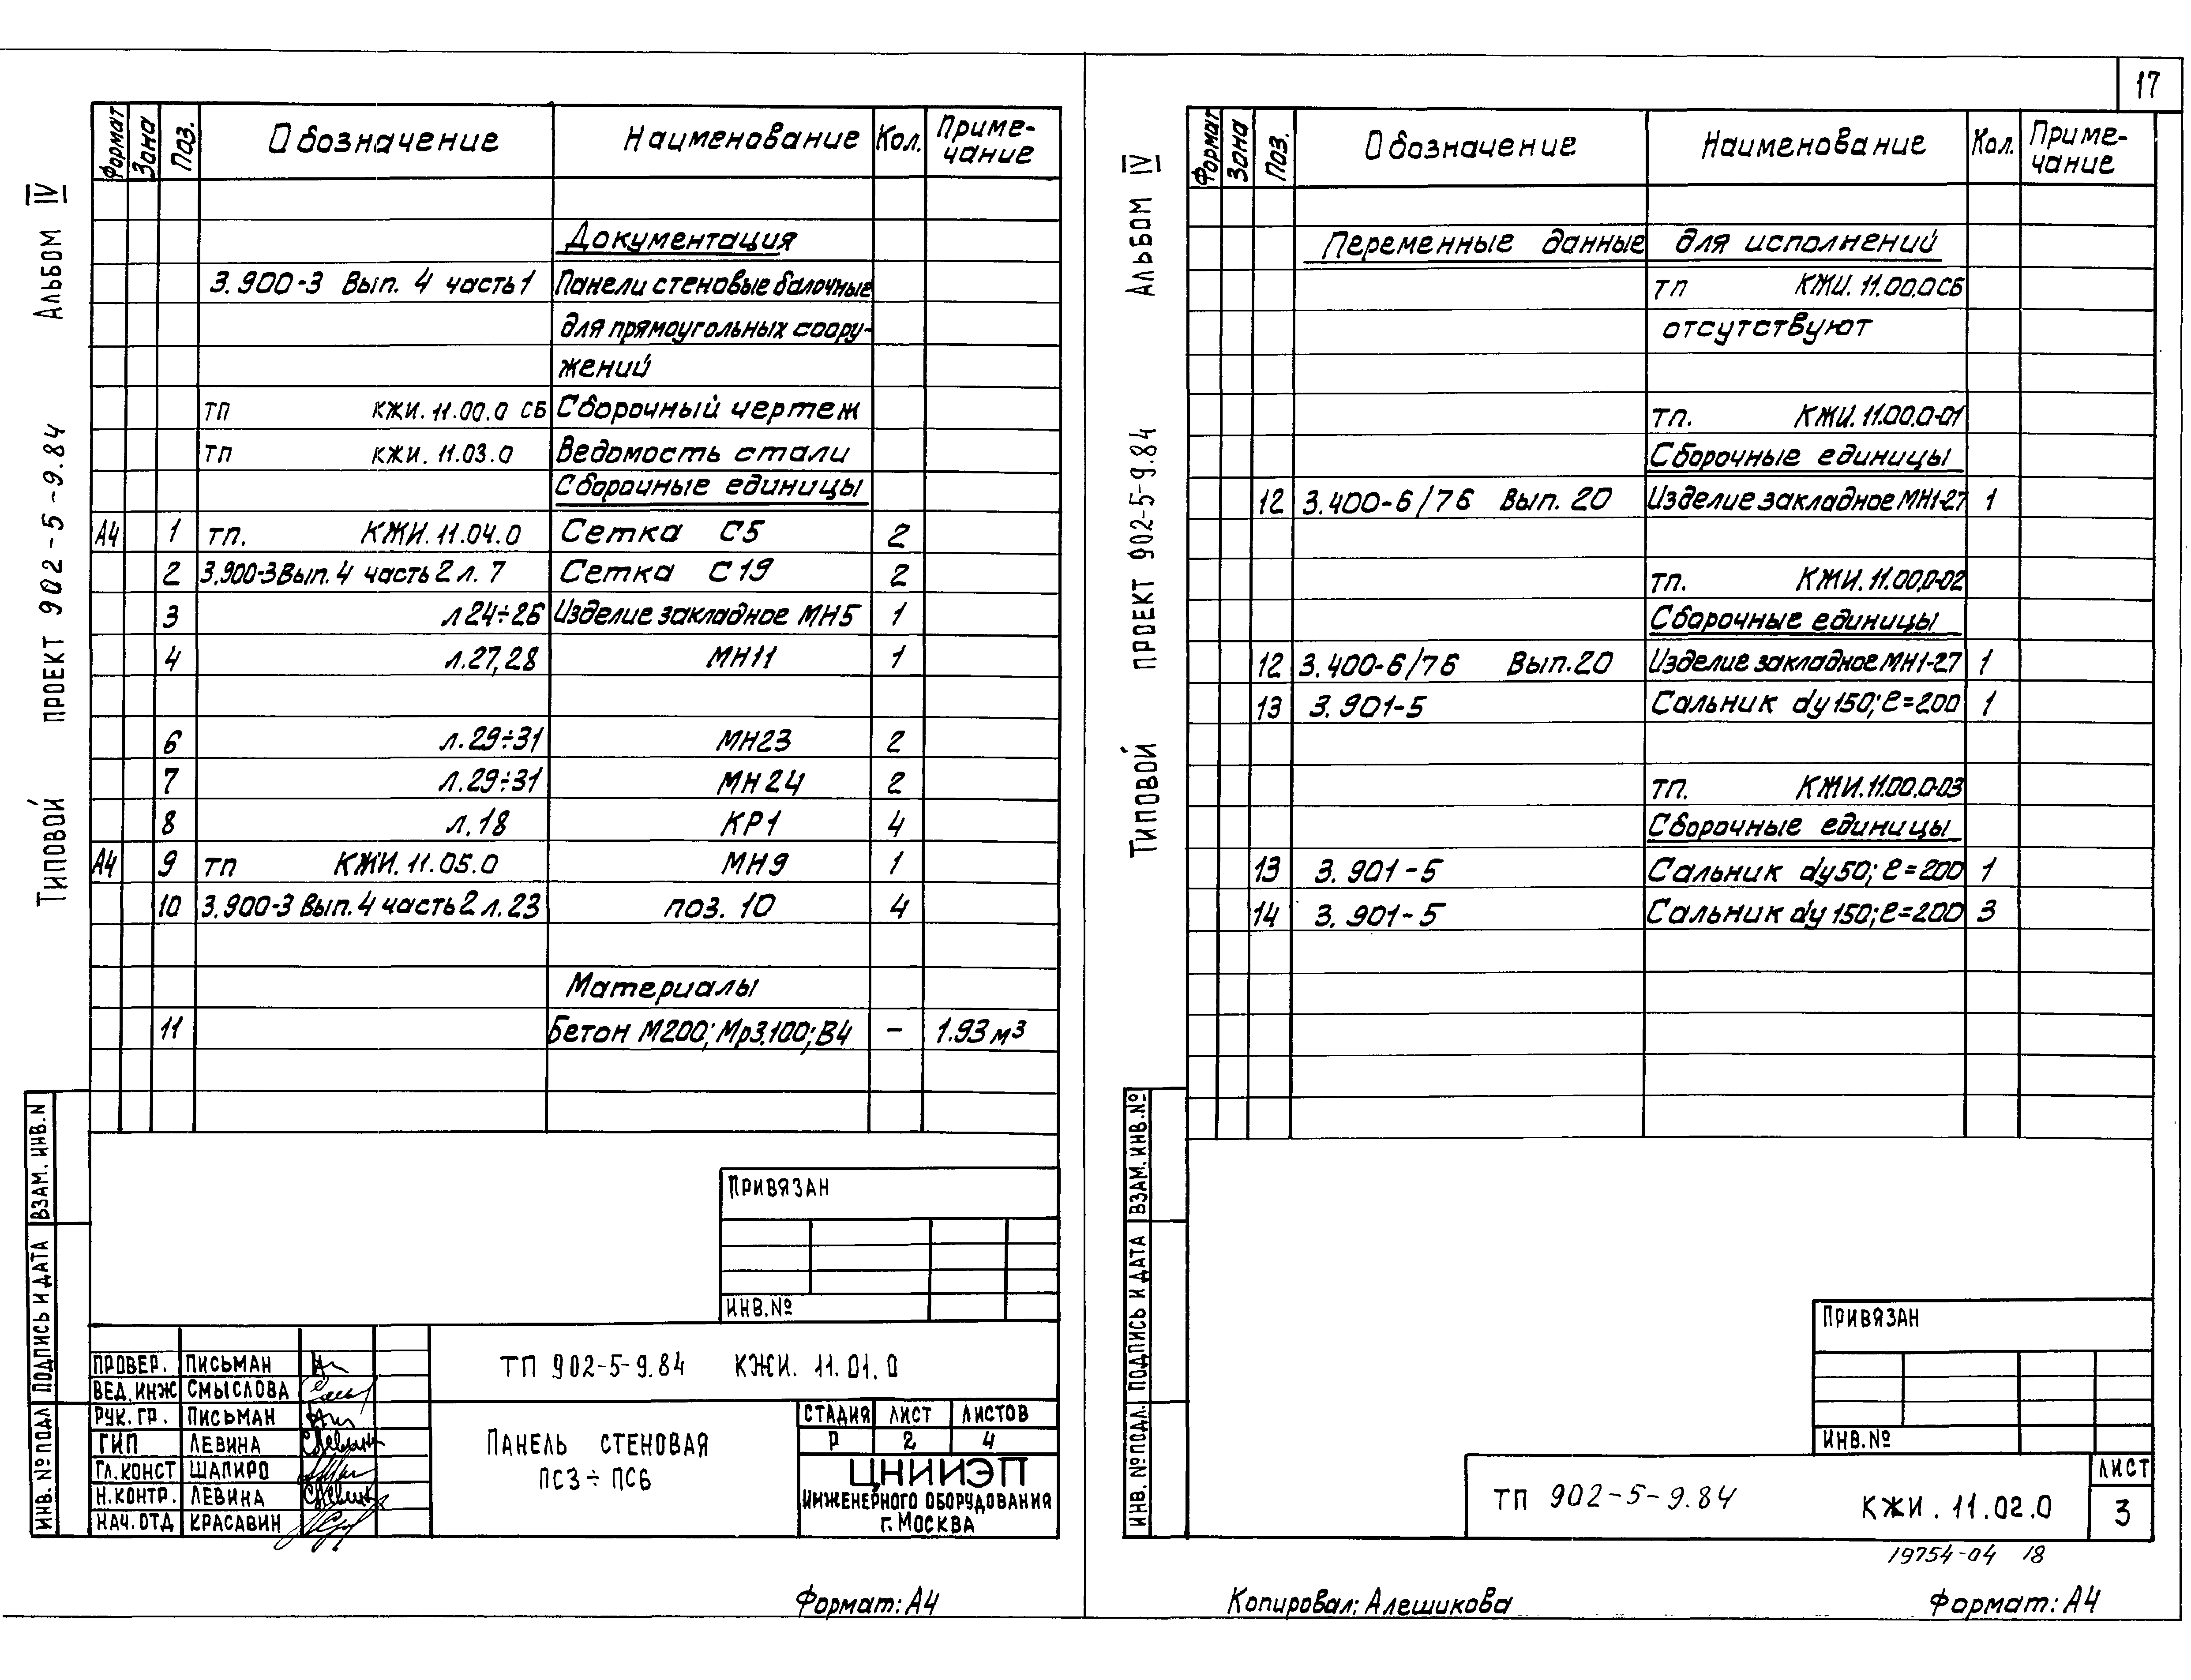 17
Типовой проект 902-5-9.84 Альбом IV
Формат Зона Поз. Обозначение Наименование Кол. Приме-чание
Документация
3.900-3 Вып. 4 часть 1 Панели стеновые балочные
для прямоугольных соору-
жений
ТП КЖИ.11.00.0 СБ Сборочный чертеж
ТП КЖИ.11.03.0 Ведомость стали
Сборочные единицы
А4 1 ТП. КЖИ.11.04.0 Сетка С5 2
2 3.900-3 Вып. 4 часть 2 л. 7 Сетка С19 2
3 л 24÷26 Изделие закладное МН5 1
4 л.27,28 МН11 1
6 л.29÷31 МН23 2
7 л.29÷31 МН24 2
8 л.18 КР1 4
А4 9 ТП КЖИ.11.05.0 МН9 1
10 3.900-3 Вып. 4 часть 2 л. 23 поз. 10 4
Материалы
11 Бетон М200; Мрз.100; В4 – 1.93 м³
ПРИВЯЗАН
ИНВ.№
ВЗАМ. ИНВ. N
ПОДПИСЬ И ДАТА
ИНВ. № ПОДЛ
ПРОВЕР. ПИСЬМАН
ВЕД. ИНЖ СМЫСЛОВА
РУК. ГР. ПИСЬМАН
ГИП ЛЕВИНА
ГЛ. КОНСТ ШАПИРО
Н. КОНТР. ЛЕВИНА
НАЧ. ОТД КРАСАВИН
ТП 902-5-9.84 КЖИ. 11.01.0
ПАНЕЛЬ СТЕНОВАЯ
ПС3÷ПС6
СТАДИЯ ЛИСТ ЛИСТОВ
Р 2 4
ЦНИИЭП
ИНЖЕНЕРНОГО ОБОРУДОВАНИЯ
г. МОСКВА
Формат: А4
Типовой проект 902-5-9.84 Альбом IV
Формат Зона Поз. Обозначение Наименование Кол. Приме-чание
Переменные данные для исполнений
ТП КЖИ.11.00.0СБ
отсутствуют
ТП. КЖИ.11.00.0-01
Сборочные единицы
12 3.400-6/76 Вып. 20 Изделие закладное МН1-27 1
ТП. КЖИ.11.00.0-02
Сборочные единицы
12 3.400-6/76 Вып.20 Изделие закладное МН1-27 1
13 3.901-5 Сальник dу150; ℓ=200 1
ТП. КЖИ.11.00.0-03
Сборочные единицы
13 3.901-5 Сальник dу50; ℓ=200 1
14 3.901-5 Сальник dу150; ℓ=200 3
ВЗАМ. ИНВ. №
ПОДПИСЬ И ДАТА
ИНВ. № ПОДЛ.
ПРИВЯЗАН
ИНВ.№
ТП 902-5-9.84 КЖИ. 11.02.0
ЛИСТ
3
19754-04 18
Копировал: Алешикова
Формат: А4